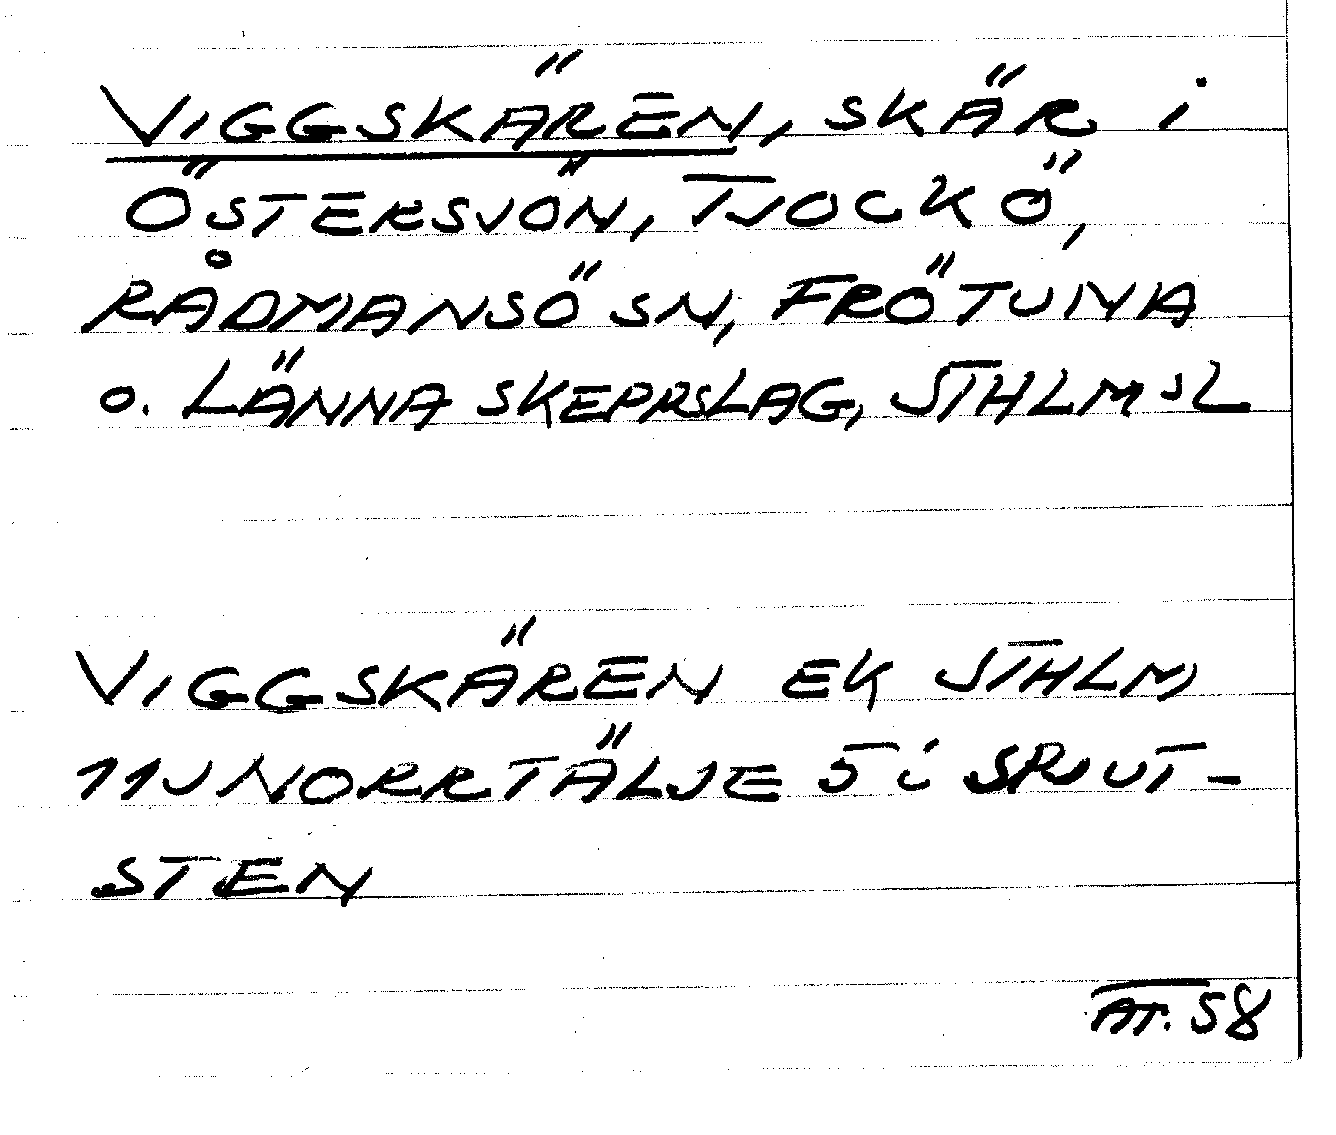 VIGGSKÄREN, SKÄR i
ÖSTERSJÖN, TJOCKÖ,
RÅDMANSÖ SN, FRÖTUNA
o. LÄNNA SKEPPSLAG, STHLMSL
VIGGSKÄREN EK STHLM
11J NORRTÄLJE 5 i SPJUT-
STEN
AT. 58